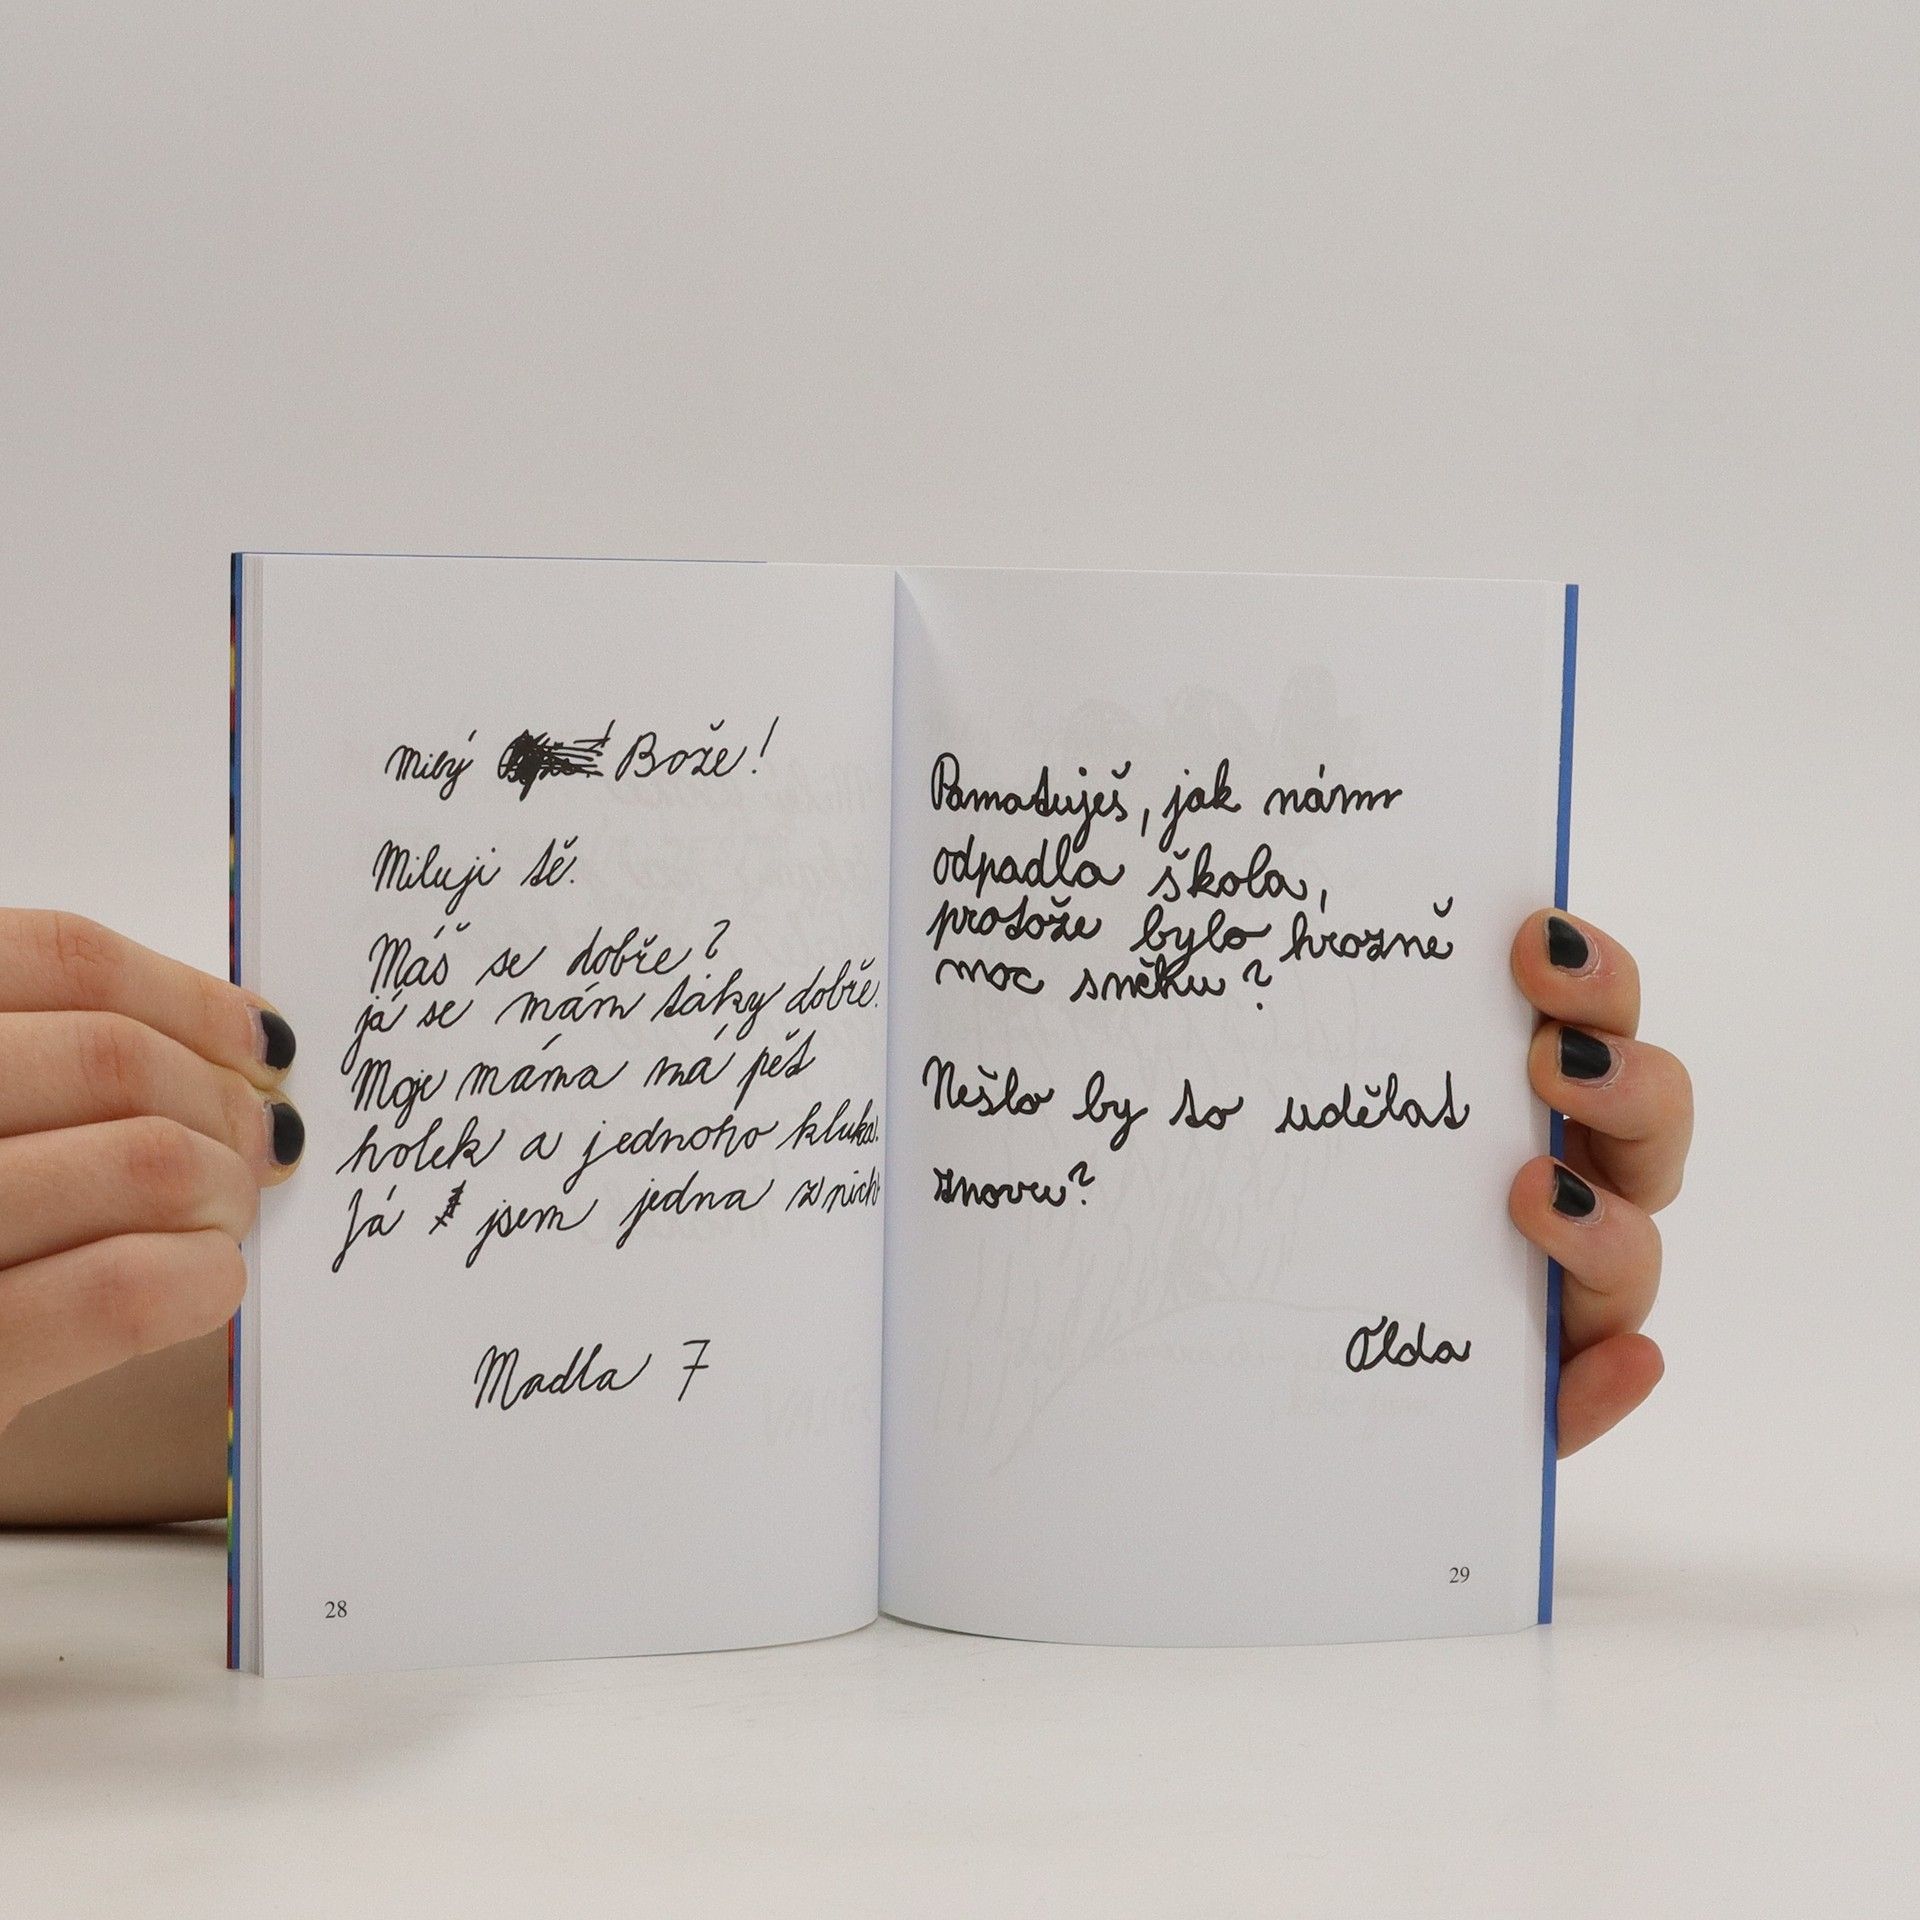 Milý Bože!
Miluji tě.
Máš se dobře?
já se mám taky dobře.
Moje máma má pět
holek a jednoho kluka.
Já jsem jedna z nich
Madla 7
28
Pamatuješ, jak nám
odpadla škola,
protože bylo hrozně
moc sněhu?
Nešlo by to udělat
znovu?
Olda
29